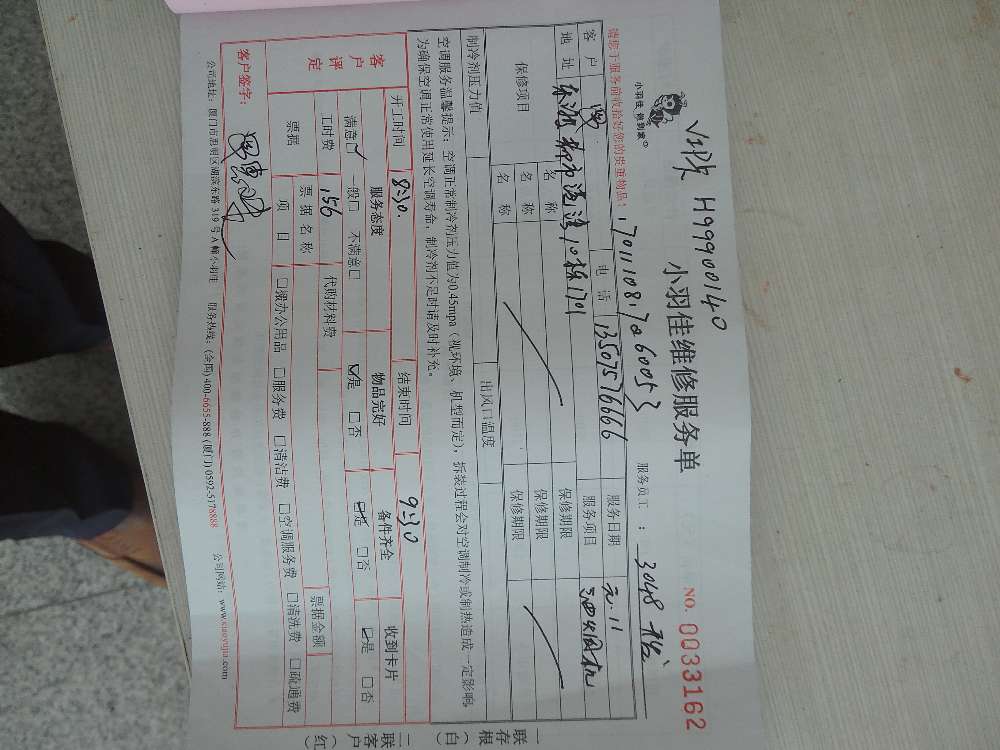 VIP卡 H99900140
小羽佳 做到家
小羽佳维修服务单
NO. 0033162
170111081706005
服务员工 : 3048
请您于服务前收拾好您的贵重物品:
客户
电话 13507576666
服务日期 元.11
地址 10栋1701
服务项目 油烟机
保修项目
名称 保修期限
名称 保修期限
名称 保修期限
制冷剂压力值 出风口温度
空调服务温馨提示:空调正常制冷剂压力值为0.45mpa(视环境、机型而定),拆装过程会对空调制冷或制热造成一定影响,
为确保空调正常使用延长空调寿命,制冷剂不足时请及时补充。
开工时间 8:30. 结束时间 9:30
客户评定
服务态度 物品完好 备件齐全 收到卡片
满意□ 一般□ 不满意□ □是 □否 □是 □否 □是 □否
工时费 156 代购材料费
票据
票据名称 票据金额
项目 □搬办公用品 □服务费 □清洁费 □空调服务费 □清洗费 □疏通费
客户签字:
公司地址:厦门市思明区湖滨东路319号A幢小羽佳 服务热线:(全国)400-6655-888 (厦门)0592-5178888 公司网站:www.xiaoyujia.com
一联存根(白)
二联客户(红)